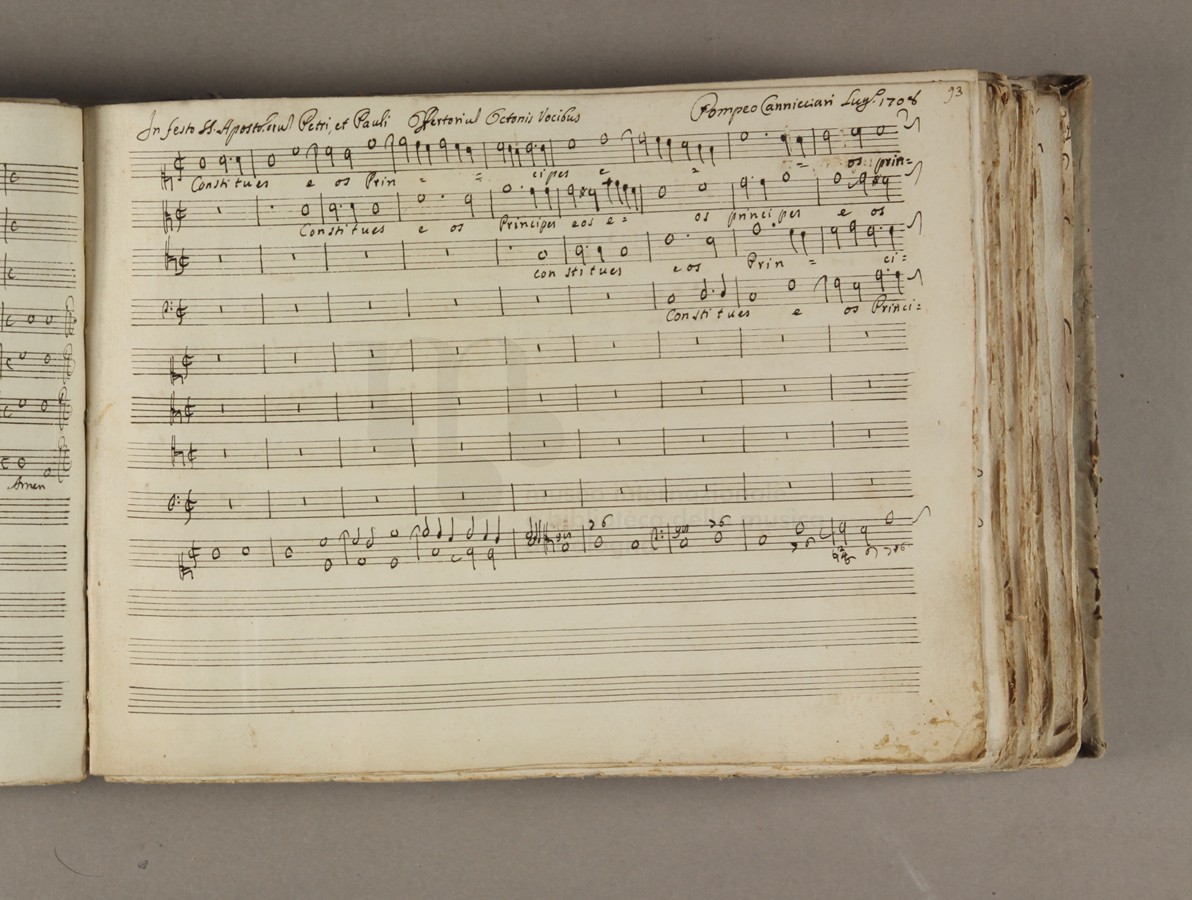 In festo SS. Apostolorum Petri, et Pauli Offertorium Octonis Vocibus Pompeo Cannicciari Lug.º 1708 93
Constitues e os Prin = = cipes e = = os prin=
Constitues e os Principes eos e = os principes e os
constitues eos Prin = ci=
Constitues e os Princi=
Amen
museo internazionale
e biblioteca della musica